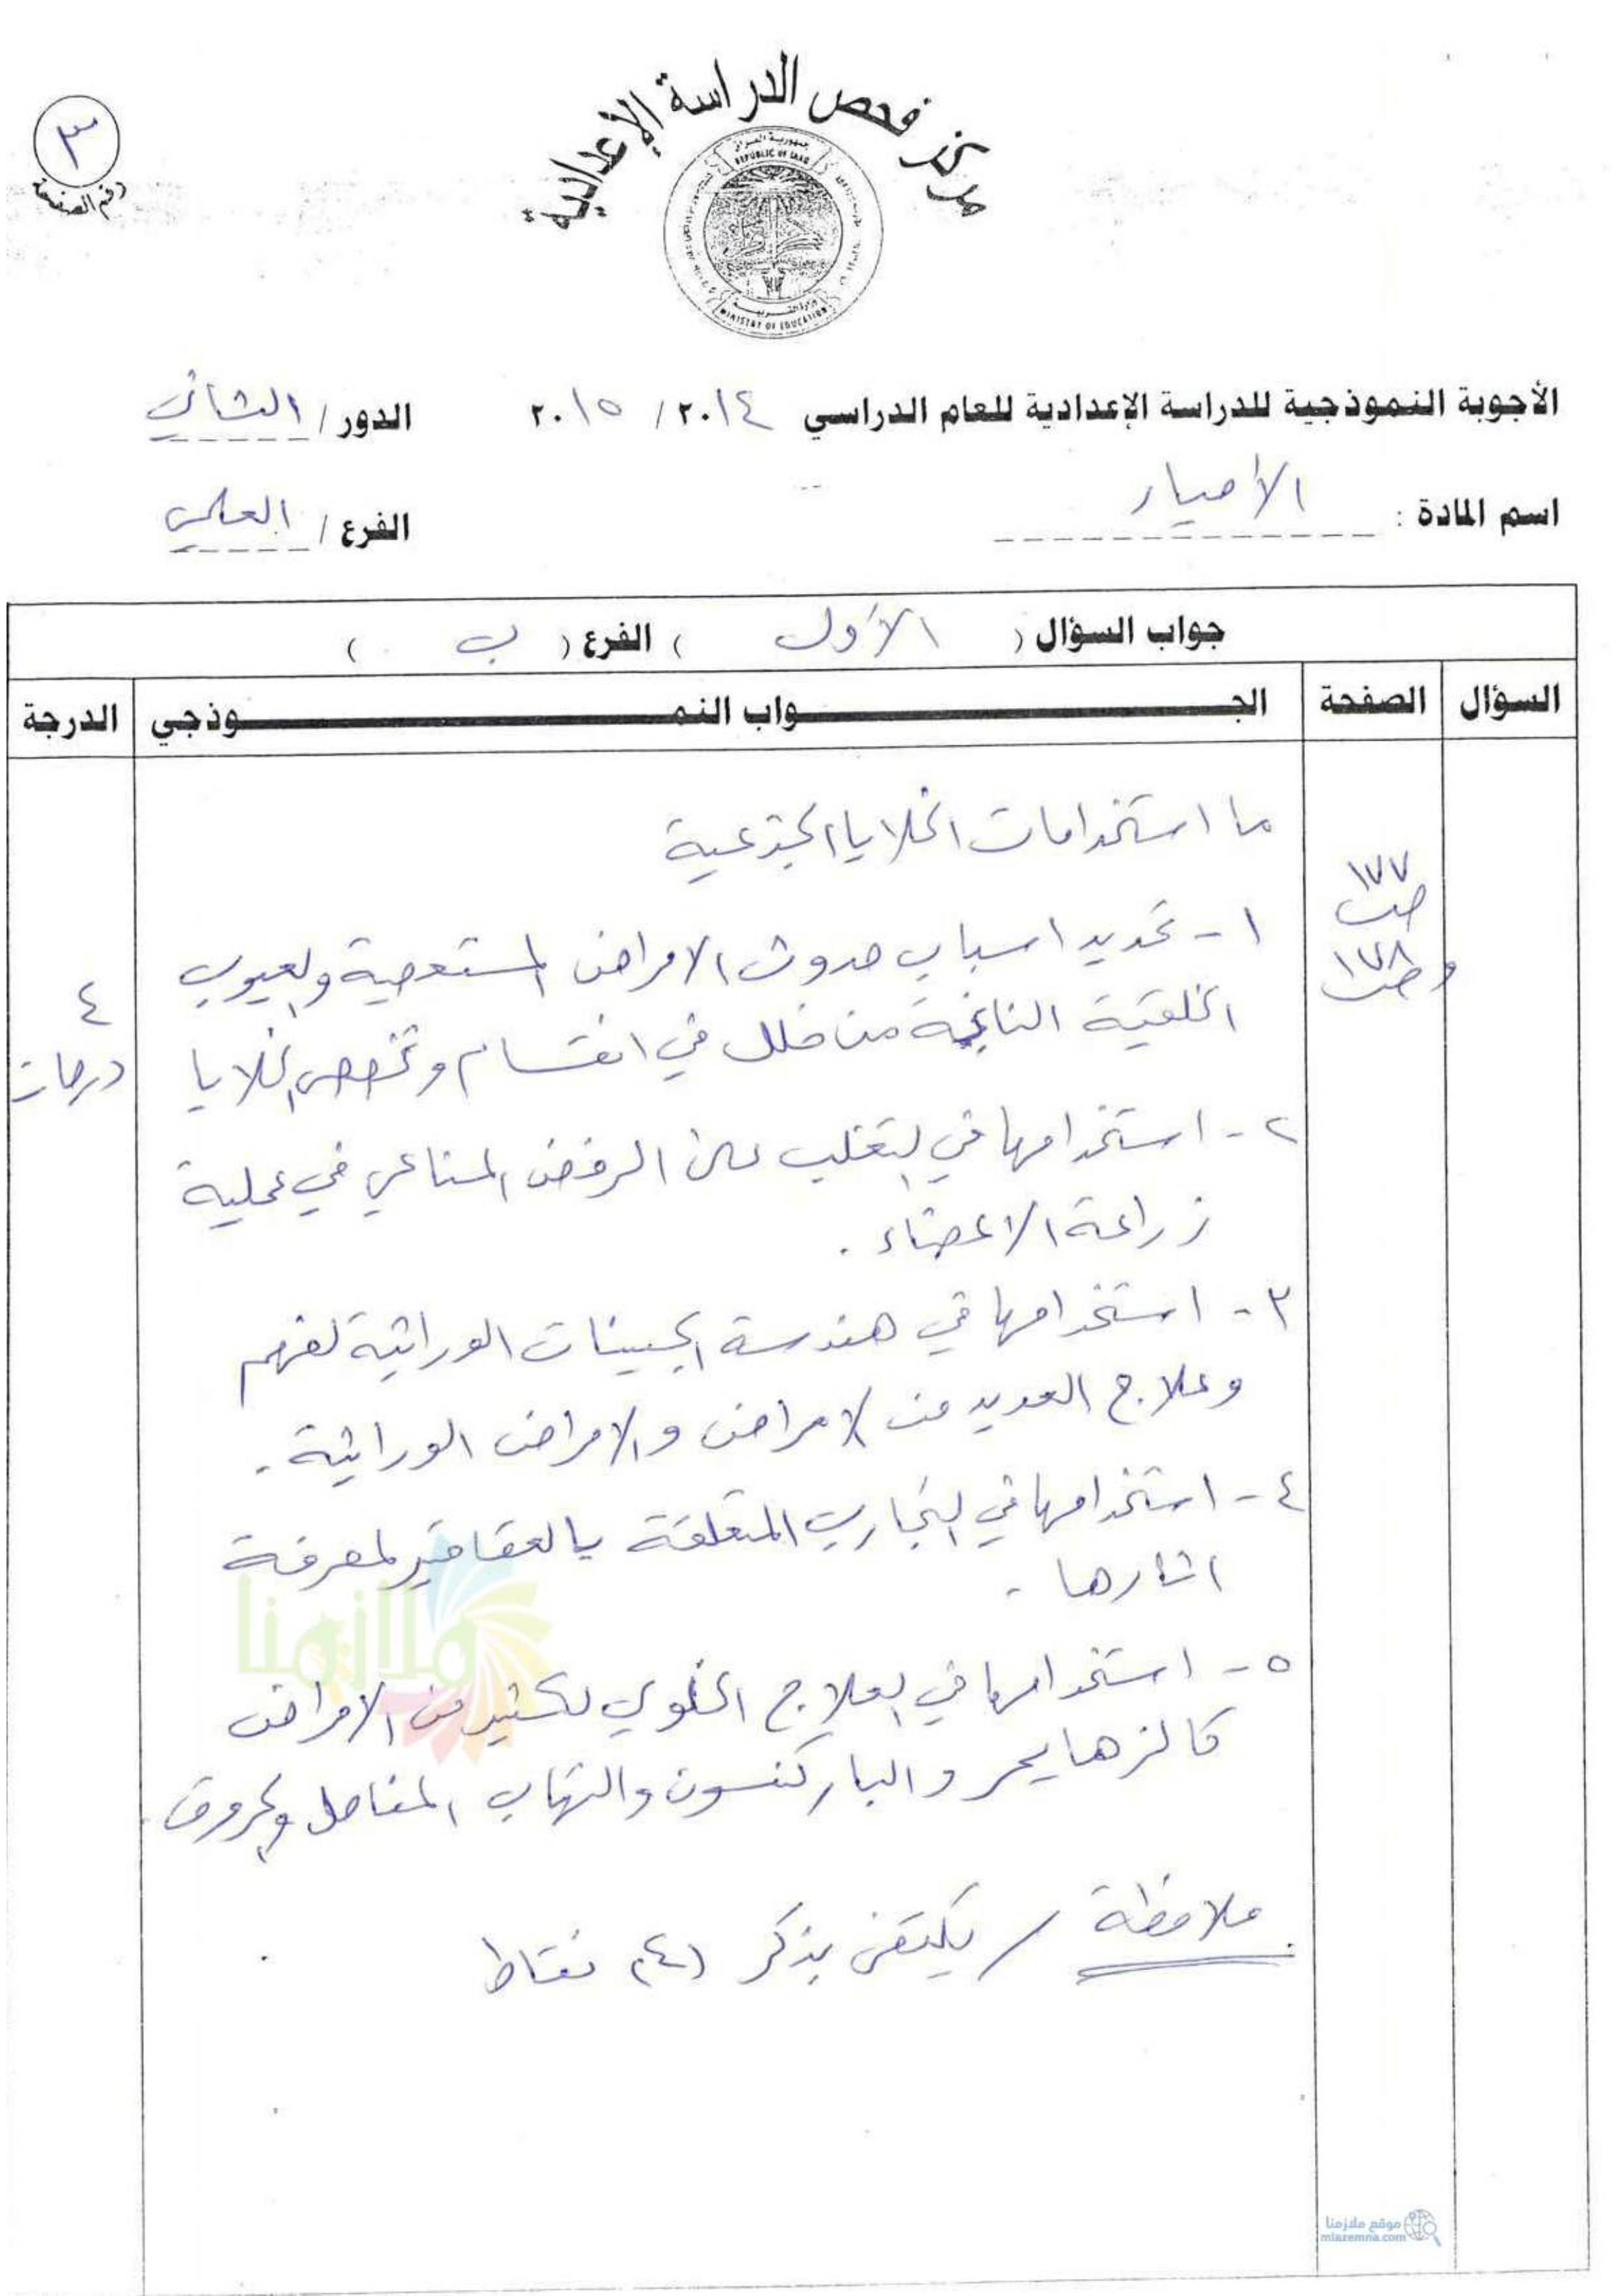 مركز فحص الدراسة الإعدادية
٣
رقم الصفحة
جمهورية العراق
REPUBLIC OF IRAQ
وزارة التربية
MINISTRY OF EDUCATION
الأجوبة النموذجية للدراسة الإعدادية للعام الدراسي ٢٠١٤ / ٢٠١٥ الدور / الثاني
اسم المادة : الأحياء الفرع / العلمي
جواب السؤال ( الأول ) الفرع ( ب )
السؤال الصفحة الجــواب النمــوذجي الدرجة
ما استخدامات الخلايا الجذعية
ص١٧٧
وص١٧٨
١- تحديد اسباب حدوث الامراض المستعصية والعيوب
الخلقية الناتجة من خلل في انقسام وتخصص الخلايا
٤
درجات
٢- استخدامها في التغلب على الرفض المناعي في عملية
زراعة الاعضاء .
٣- استخدامها في هندسة الجينات الوراثية لفهم
وعلاج العديد من الامراض والامراض الوراثية .
٤- استخدامها في التجارب المتعلقة بالعقاقير لمعرفة
اثارها .
ملازمنا
٥- استخدامها في العلاج الخلوي لكثير من الامراض
كالزهايمر والباركنسون والتهاب المفاصل والحروق .
ملاحظة / يكتفى بذكر (٤) نقاط
موقع ملازمنا
mlazemna.com